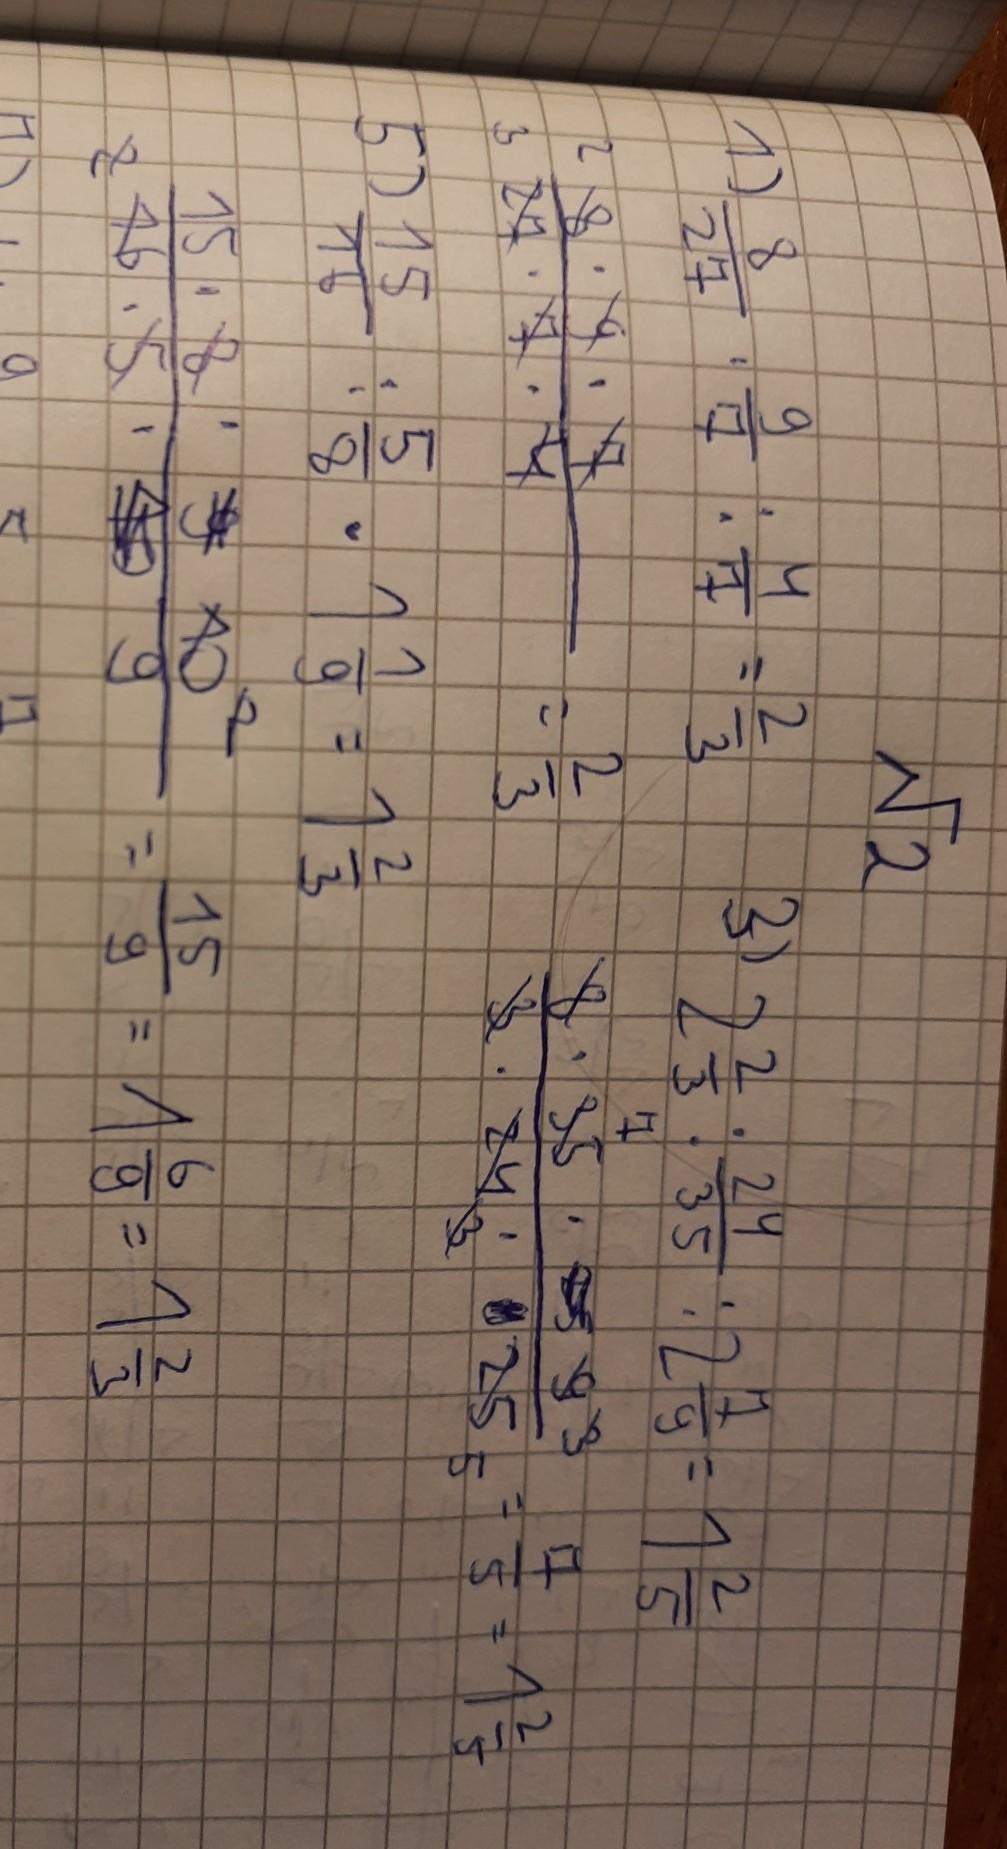 √2
1) 8/27 : 9/7 : 4/7 = 2/3
2 8 · 9 · 7 / 3 27 · 7 · 4 = 2/3
3) 2 2/3 : 24/35 : 2 7/9 = 1 2/5
8 · 35 7 · 9 3 / 3 · 24 3 · 25 5 = 7/5 = 1 2/5
5) 15/16 : 5/8 · 1 1/9 = 1 2/3
15 · 8 · 10 2 / 2 16 · 5 · 9 = 15/9 = 1 6/9 = 1 2/3